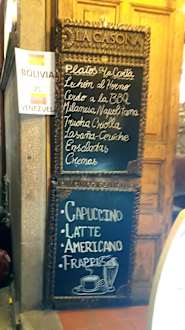 LA CASONA
Platos a la Carta
Lechón al Horno
Cerdo a la BBQ
Milanesa Napolitana
Trucha Criolla
Lasaña-Ceviche
Ensaladas
Cremas
BOLIVIA
VS
VENEZUELA
• CAPUCCINO
• LATTE
• AMERICANO
• FRAPPÉ